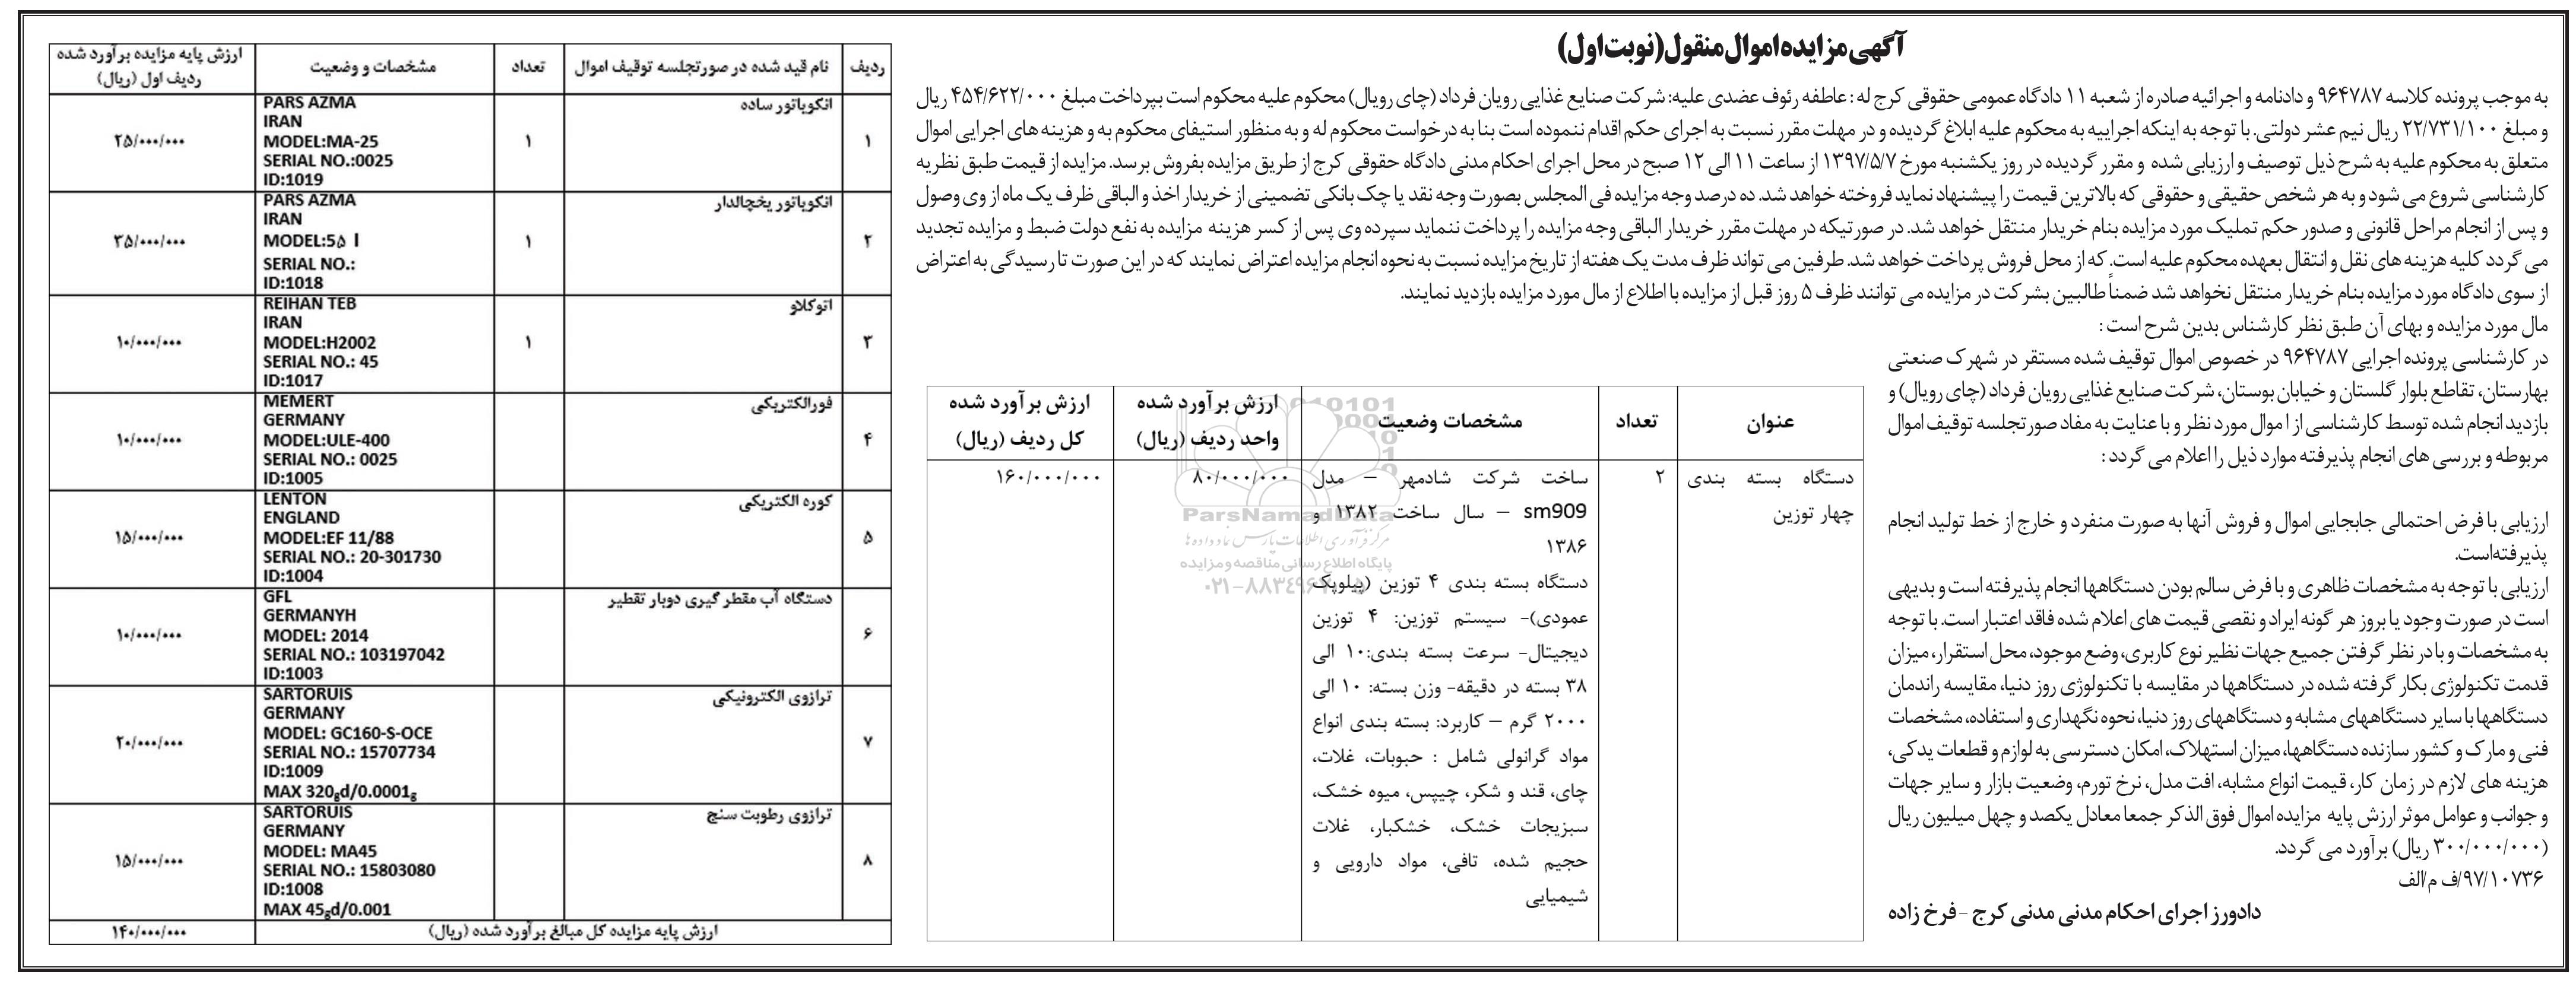 آگهی مزایده اموال منقول (نوبت اول)
به موجب پرونده کلاسه ۹۶۴۷۸۷ و دادنامه و اجرائیه صادره از شعبه ۱۱ دادگاه عمومی حقوقی کرج له : عاطفه رئوف عضدی علیه: شرکت صنایع غذایی رویان فرداد (چای رویال) محکوم علیه محکوم است بپرداخت مبلغ ۴۵۴/۶۲۲/۰۰۰ ریال
و مبلغ ۲۲/۷۳۱/۱۰۰ ریال نیم عشر دولتی. با توجه به اینکه اجراییه به محکوم علیه ابلاغ گردیده و در مهلت مقرر نسبت به اجرای حکم اقدام ننموده است بنا به درخواست محکوم له و به منظور استیفای محکوم به و هزینه های اجرایی اموال
متعلق به محکوم علیه به شرح ذیل توصیف و ارزیابی شده و مقرر گردیده در روز یکشنبه مورخ ۱۳۹۷/۵/۷ از ساعت ۱۱ الی ۱۲ صبح در محل اجرای احکام مدنی دادگاه حقوقی کرج از طریق مزایده بفروش برسد. مزایده از قیمت طبق نظریه
کارشناسی شروع می شود و به هر شخص حقیقی و حقوقی که بالاترین قیمت را پیشنهاد نماید فروخته خواهد شد. ده درصد وجه مزایده فی المجلس بصورت وجه نقد یا چک بانکی تضمینی از خریدار اخذ و الباقی ظرف یک ماه از وی وصول
و پس از انجام مراحل قانونی و صدور حکم تملیک مورد مزایده بنام خریدار منتقل خواهد شد. در صورتیکه در مهلت مقرر خریدار الباقی وجه مزایده را پرداخت ننماید سپرده وی پس از کسر هزینه مزایده به نفع دولت ضبط و مزایده تجدید
می گردد کلیه هزینه های نقل و انتقال بعهده محکوم علیه است. که از محل فروش پرداخت خواهد شد. طرفین می تواند ظرف مدت یک هفته از تاریخ مزایده نسبت به نحوه انجام مزایده اعتراض نمایند که در این صورت تا رسیدگی به اعتراض
از سوی دادگاه مورد مزایده بنام خریدار منتقل نخواهد شد ضمناً طالبین بشرکت در مزایده می توانند ظرف ۵ روز قبل از مزایده با اطلاع از مال مورد مزایده بازدید نمایند.
مال مورد مزایده و بهای آن طبق نظر کارشناس بدین شرح است :
در کارشناسی پرونده اجرایی ۹۶۴۷۸۷ در خصوص اموال توقیف شده مستقر در شهرک صنعتی
بهارستان، تقاطع بلوار گلستان و خیابان بوستان، شرکت صنایع غذایی رویان فرداد (چای رویال) و
بازدید انجام شده توسط کارشناسی از اموال مورد نظر و با عنایت به مفاد صورتجلسه توقیف اموال
مربوطه و بررسی های انجام پذیرفته موارد ذیل را اعلام می گردد :
ارزیابی با فرض احتمالی جابجایی اموال و فروش آنها به صورت منفرد و خارج از خط تولید انجام
پذیرفته‌است.
ارزیابی با توجه به مشخصات ظاهری و با فرض سالم بودن دستگاهها انجام پذیرفته است و بدیهی
است در صورت وجود یا بروز هر گونه ایراد و نقصی قیمت های اعلام شده فاقد اعتبار است. با توجه
به مشخصات و با در نظر گرفتن جمیع جهات نظیر نوع کاربری، وضع موجود، محل استقرار، میزان
قدمت تکنولوژی بکار گرفته شده در دستگاهها در مقایسه با تکنولوژی روز دنیا، مقایسه راندمان
دستگاهها با سایر دستگاههای مشابه و دستگاههای روز دنیا، نحوه نگهداری و استفاده، مشخصات
فنی و مارک و کشور سازنده دستگاهها، میزان استهلاک، امکان دسترسی به لوازم و قطعات یدکی،
هزینه های لازم در زمان کار، قیمت انواع مشابه، افت مدل، نرخ تورم، وضعیت بازار و سایر جهات
و جوانب و عوامل موثر ارزش پایه مزایده اموال فوق الذکر جمعا معادل یکصد و چهل میلیون ریال
(۳۰۰/۰۰۰/۰۰۰ ریال) برآورد می گردد.
۹۷/۱۰۷۳۶/ف م/الف
دادورز اجرای احکام مدنی مدنی کرج - فرخ زاده
عنوان تعداد مشخصات وضعیت ارزش برآورد شده واحد ردیف (ریال) ارزش برآورد شده کل ردیف (ریال)
دستگاه بسته بندی ۲ ساخت شرکت شادمهر – مدل ۸۰/۰۰۰/۰۰۰ ۱۶۰/۰۰۰/۰۰۰
چهار توزین sm909 – سال ساخت ۱۳۸۲ و
۱۳۸۶
دستگاه بسته بندی ۴ توزین (پیلوپک
عمودی)- سیستم توزین: ۴ توزین
دیجیتال- سرعت بسته بندی:۱۰ الی
۳۸ بسته در دقیقه- وزن بسته: ۱۰ الی
۲۰۰۰ گرم – کاربرد: بسته بندی انواع
مواد گرانولی شامل : حبوبات، غلات،
چای، قند و شکر، چیپس، میوه خشک،
سبزیجات خشک، خشکبار، غلات
حجیم شده، تافی، مواد دارویی و
شیمیایی
ParsNamadData
مرکز فرآوری اطلاعات پارس نماد داده ها
پایگاه اطلاع رسانی مناقصه و مزایده
ردیف نام قید شده در صورتجلسه توقیف اموال تعداد مشخصات و وضعیت ارزش پایه مزایده برآورد شده ردیف اول (ریال)
۱ انکوباتور ساده ۱ PARS AZMA ۲۵/۰۰۰/۰۰۰
IRAN
MODEL:MA-25
SERIAL NO.:0025
ID:1019
۲ انکوباتور یخچالدار ۱ PARS AZMA ۳۵/۰۰۰/۰۰۰
IRAN
MODEL:5۵ ا
SERIAL NO.:
ID:1018
۳ اتوکلاو ۱ REIHAN TEB ۱۰/۰۰۰/۰۰۰
IRAN
MODEL:H2002
SERIAL NO.: 45
ID:1017
۴ فورالکتریکی MEMERT ۱۰/۰۰۰/۰۰۰
GERMANY
MODEL:ULE-400
SERIAL NO.: 0025
ID:1005
۵ کوره الکتریکی LENTON ۱۵/۰۰۰/۰۰۰
ENGLAND
MODEL:EF 11/88
SERIAL NO.: 20-301730
ID:1004
۶ دستگاه آب مقطر گیری دوبار تقطیر GFL ۱۰/۰۰۰/۰۰۰
GERMANYH
MODEL: 2014
SERIAL NO.: 103197042
ID:1003
۷ ترازوی الکترونیکی SARTORUIS ۲۰/۰۰۰/۰۰۰
GERMANY
MODEL: GC160-S-OCE
SERIAL NO.: 15707734
ID:1009
MAX 320gd/0.0001g
۸ ترازوی رطوبت سنج SARTORUIS ۱۵/۰۰۰/۰۰۰
GERMANY
MODEL: MA45
SERIAL NO.: 15803080
ID:1008
MAX 45gd/0.001
ارزش پایه مزایده کل مبالغ برآورد شده (ریال) ۱۴۰/۰۰۰/۰۰۰